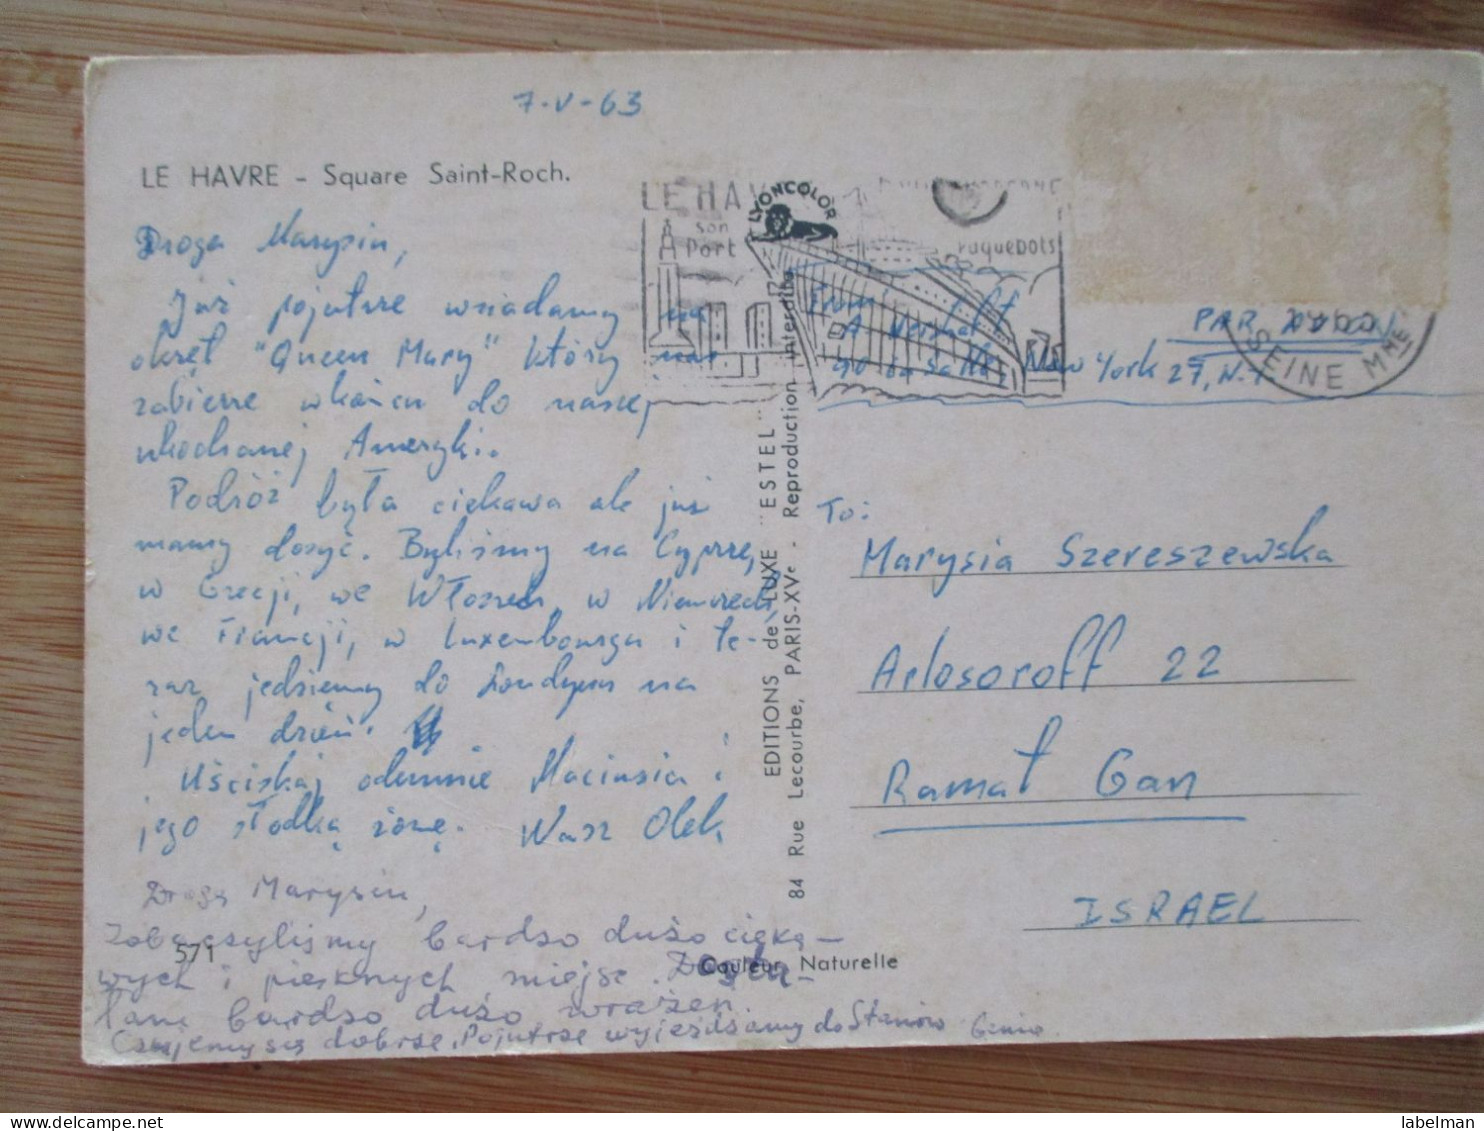 7-V-63
LE HAVRE - Square Saint-Roch.
Droga Marysiu,
Już pojutrze wsiadamy na
okręt "Queen Mary" który nas
zabierze w końcu do naszej
ukochanej Ameryki.
Podróż była ciekawa ale już
mamy dosyć. Byliśmy na Cyprze,
w Grecji, we Włoszech, w Niemczech,
we Francji, w Luxembourgu i te-
raz jedziemy do Londynu na
jeden dzień.
Uściskaj odemnie Maciusia i
jego słodką żonę. Wasz Olek
Droga Marysiu,
Zobaczyliśmy bardzo dużo cieka-
wych i pięknych miejsc.
bardzo dużo wrażeń.
Czujemy się dobrze. Pojutrze wyjeżdżamy do Stanów Genia
571
Couleur Naturelle
EDITIONS de LUXE "ESTEL"
84 Rue Lecourbe, PARIS-XVe - Reproduction interdite
LYONCOLOR
LE HAV
son
Port
Paquebots
SEINE MME
From
New York 27, N.Y.
PAR AVION
To:
Marysia Szereszewska
Arlosoroff 22
Ramat Gan
ISRAEL
labelman